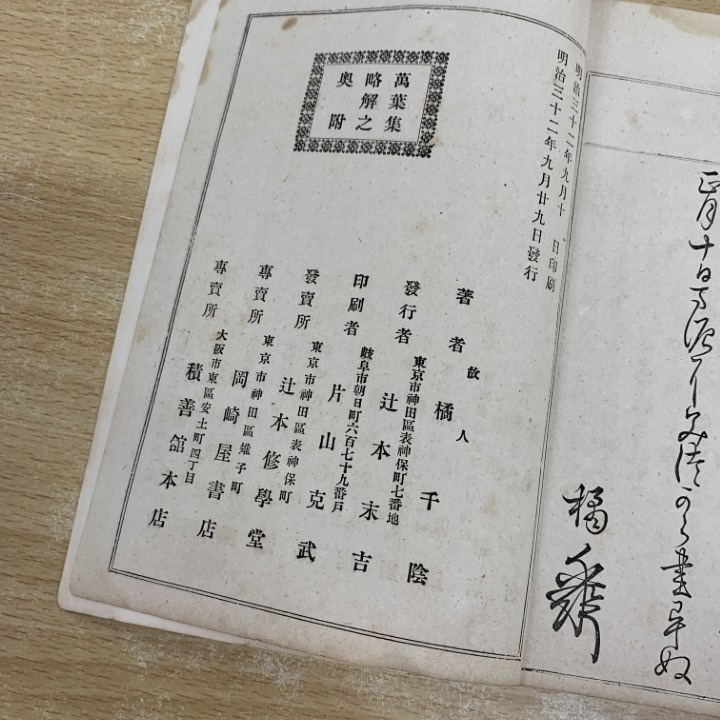 正月十日
橘千蔭
明治三十二年九月十　日印刷
明治三十二年九月廿九日發行
萬葉集
略解之
奥附
著者 故人 橘千陰
發行者 東京市神田區表神保町七番地 辻本末吉
印刷者 岐阜市朝日町六百七十九番戶 片山克武
發賣所 東京市神田區表神保町 辻本修學堂
專賣所 東京市神田區雉子町 岡崎屋書店
專賣所 大阪市東區安土町四丁目 積善館本店